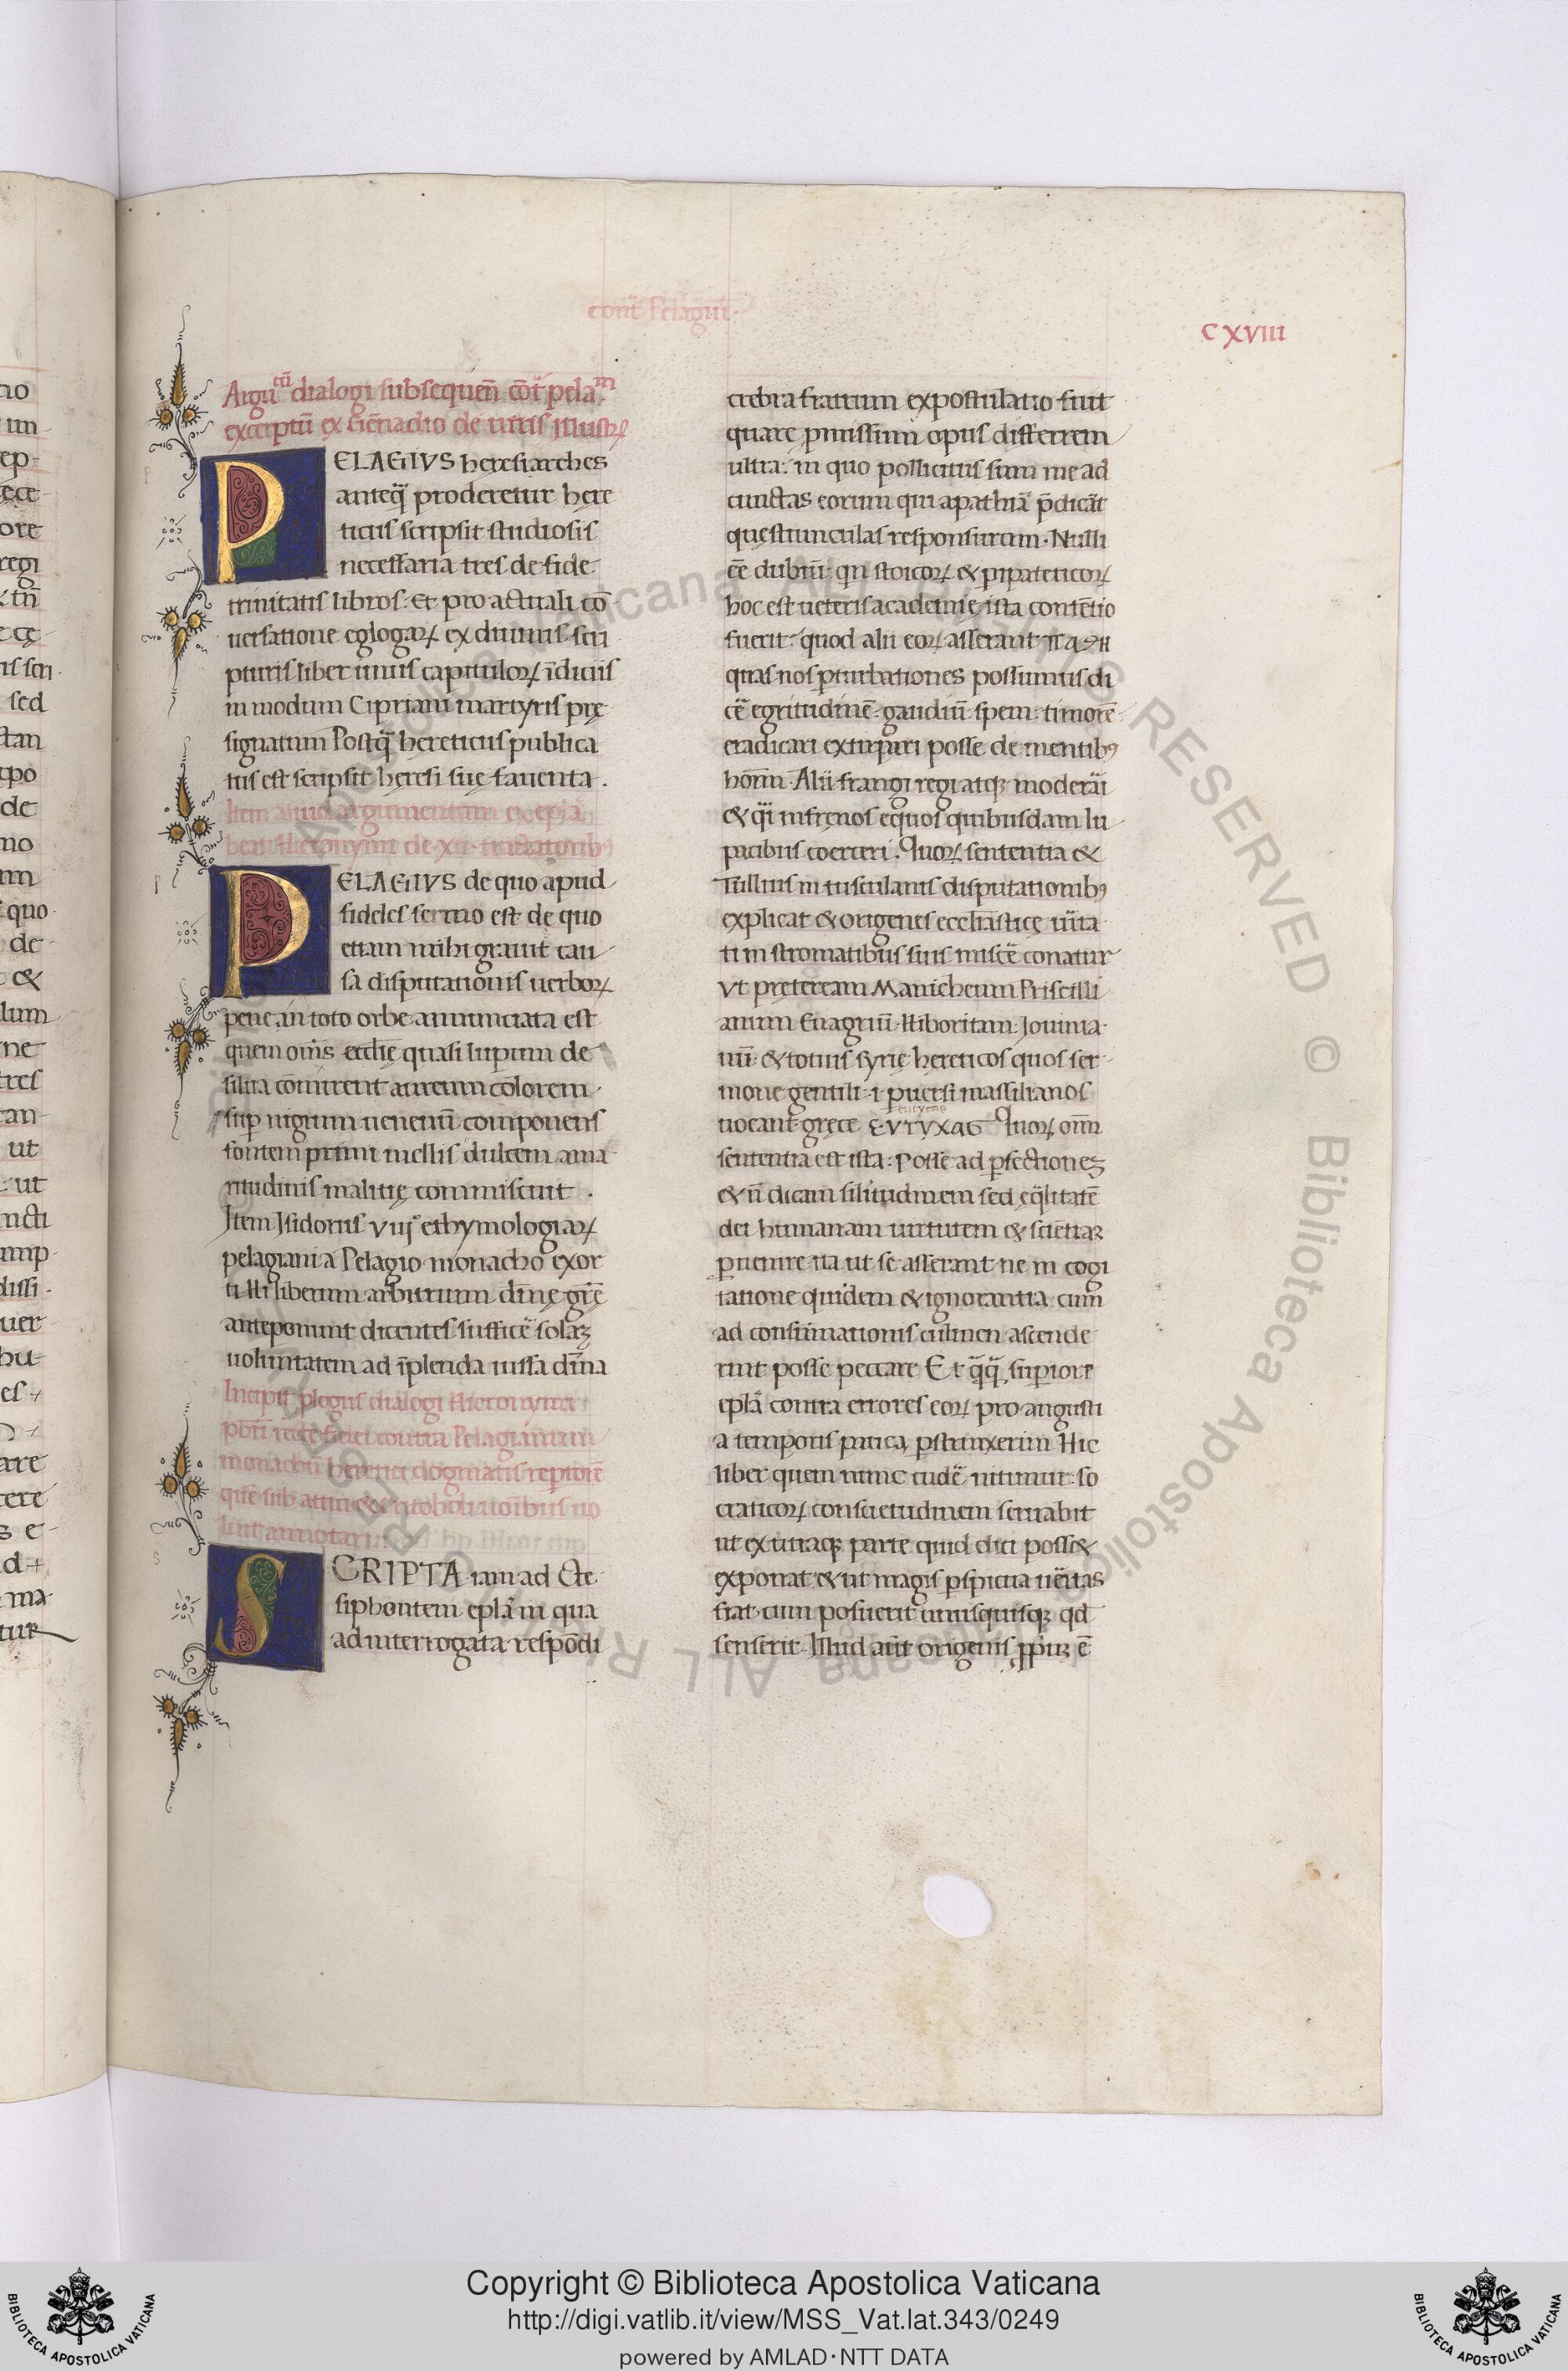 cont̄ Pelagiū·
CXVIII
Argūtū dialogi subsequen̄ cōt̄ pelam
excerptū ex Gēnadio de uiris illustrꝝ
PELAGIVS heresiarches
anteq̄ proderetur here
ticus scripsit studiosis
necessaria tres de fide
trinitatis libros· Et pro actuali cō
uersatione eglogaꝝ ex diuinis scri
pturis liber unus capituloꝝ īdiciis
in modum Cipriani martyris prę
signatum Postq̄ hereticus publica
tus est scripsit heresi suę fauentia.
Item aliud argumentum ex epl̄a
beati Hieronymi de xii tractatorib9
PELAGIVS de quo apud
fideles sermo est de quo
etiam mihi grauit cau
sa disputationis uerboꝝ
pene in toto orbe annunciata est
quem oms̄ ecclīę quasi lupum de
silua comitent aureum colorem
sup nigrum uenenū componens
fontem primi mellis dulcem ama
ritudinis malitię commiscuit .
Item Isidorus viij° ethymologiaꝝ
pelagiani a Pelagio monacho exor
ti Hi liberum arbitrium diūnę grē
anteponunt dicentes sufficē solaꝫ
uoluntatem ad īplenda iussa diūna
Incipit plogus dialogi Hieronymi
pbr̄i recte fidei contra Pelagianum
monachū heretici dogmatis reptorē
quē sub attici & critoboli noībus uo
luit annotari
SCRIPTA iam ad Cte
siphontem epl̄a in qua
ad interrogata respōdi
crebra fratrum expostulatio fuit
quare pmissum opus differrem
ultra: in quo pollicitus sum me ad
cunctas eorum qui apathiā p̄dicāt
questiunculas responsurum· Nulli
ēē dubiū qn stoicoꝝ & pipateticoꝝ
hoc est ueteris academię ista contētio
fuerit· quod alii eoꝝ asserant παθη
quas nos pturbationes possumus di
cē egritudinē· gaudiū· spem· timorē
eradicari extirpari posse de mentib9
hoīm· Alii frangi regi atqꝫ moderāi
& q̄i infrenos equos quibusdam lu
patibus coerceri. Quoꝝ sententia &
Tullius in tusculanis disputationib9
explicat & origenes ecclīasticę uīta
ti in stromatibus suis miscē conatur
Vt pręteream Manicheum Priscilli
anum Euagriū· Hiboritam· Iouinia
nū· & totius syrię hereticos quos ser
mone gentili· i puersi massilianos
eutyche
uocant· gręce ΕVΤVΧΑϹ Quoꝝ om̄i
sententia est ista: Posse ad pfectionę
& n̄ dicam sil̄itudinem sed ęq̄litatē
dei humanam uirtutem & sciētiaꝫ
puenire ita ut se asserant ne in cogi
tatione quidem & ignorantia cum
ad consūmationis culmen ascende
rint posse peccare Et q̄q̄ supiore
epl̄a contra errores eoꝝ pro angusti
a temporis pauca pstrinxerim Hic
liber quem nunc cudē nitimur: so
craticoꝝ consuetudinem seruabit
ut ex utraqꝫ parte quid dici poss&
exponat· & ut magis pspicua uēitas
fiat· cum posuerit unusquisqꝫ qd
senserit· Illud aūt origenis ppriuꝫ ē
Copyright © Biblioteca Apostolica Vaticana
http://digi.vatlib.it/view/MSS_Vat.lat.343/0249
powered by AMLAD·NTT DATA